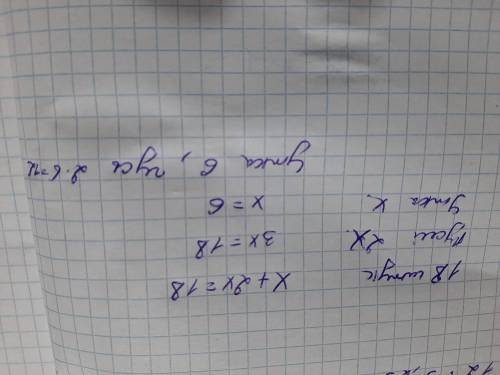 18 штук x + 2x = 18
Гусей 2x. 3x = 18
Утка x x = 6
Утка 6, гуси 2·6=12